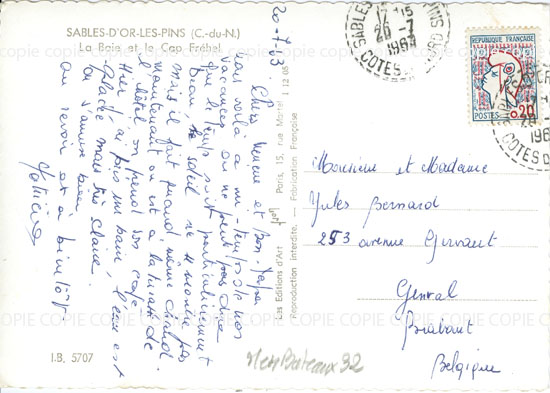 SABLES-D'OR-LES-PINS (C.-du-N.)
La Baie et le Cap Fréhel
20-7-63
Chers Mémé et Bon-Papa
Nous voilà à mi-temps de nos
vacances. On ne peut pas dire
que le temps soit particulièrement
beau, le soleil ne se montre pas
mais il fait quand même chaud.
Maintenant on est à la terrasse de
l'hôtel on prend son café.
Hier j'ai pris un bain, l'eau est
glacée mais très claire.
On s'amuse bien
au revoir et à bientôt
I.B. 5707
Les Editions d'Art Paris, 15, rue Martel 1 12 05
Reproduction Interdite. — Fabrication Française
SABLES D'OR LES PINS
12 H 15
20 - 7
196
COTES
REPUBLIQUE FRANÇAISE
POSTES
0,20
COTES D
Monsieur et Madame
Jules Bernard
253 avenue Gevaert
Genval
Brabant
Belgique
Mer Bateaux 92
COPIE COPIE COPIE COPIE COPIE COPIE COPIE COPIE